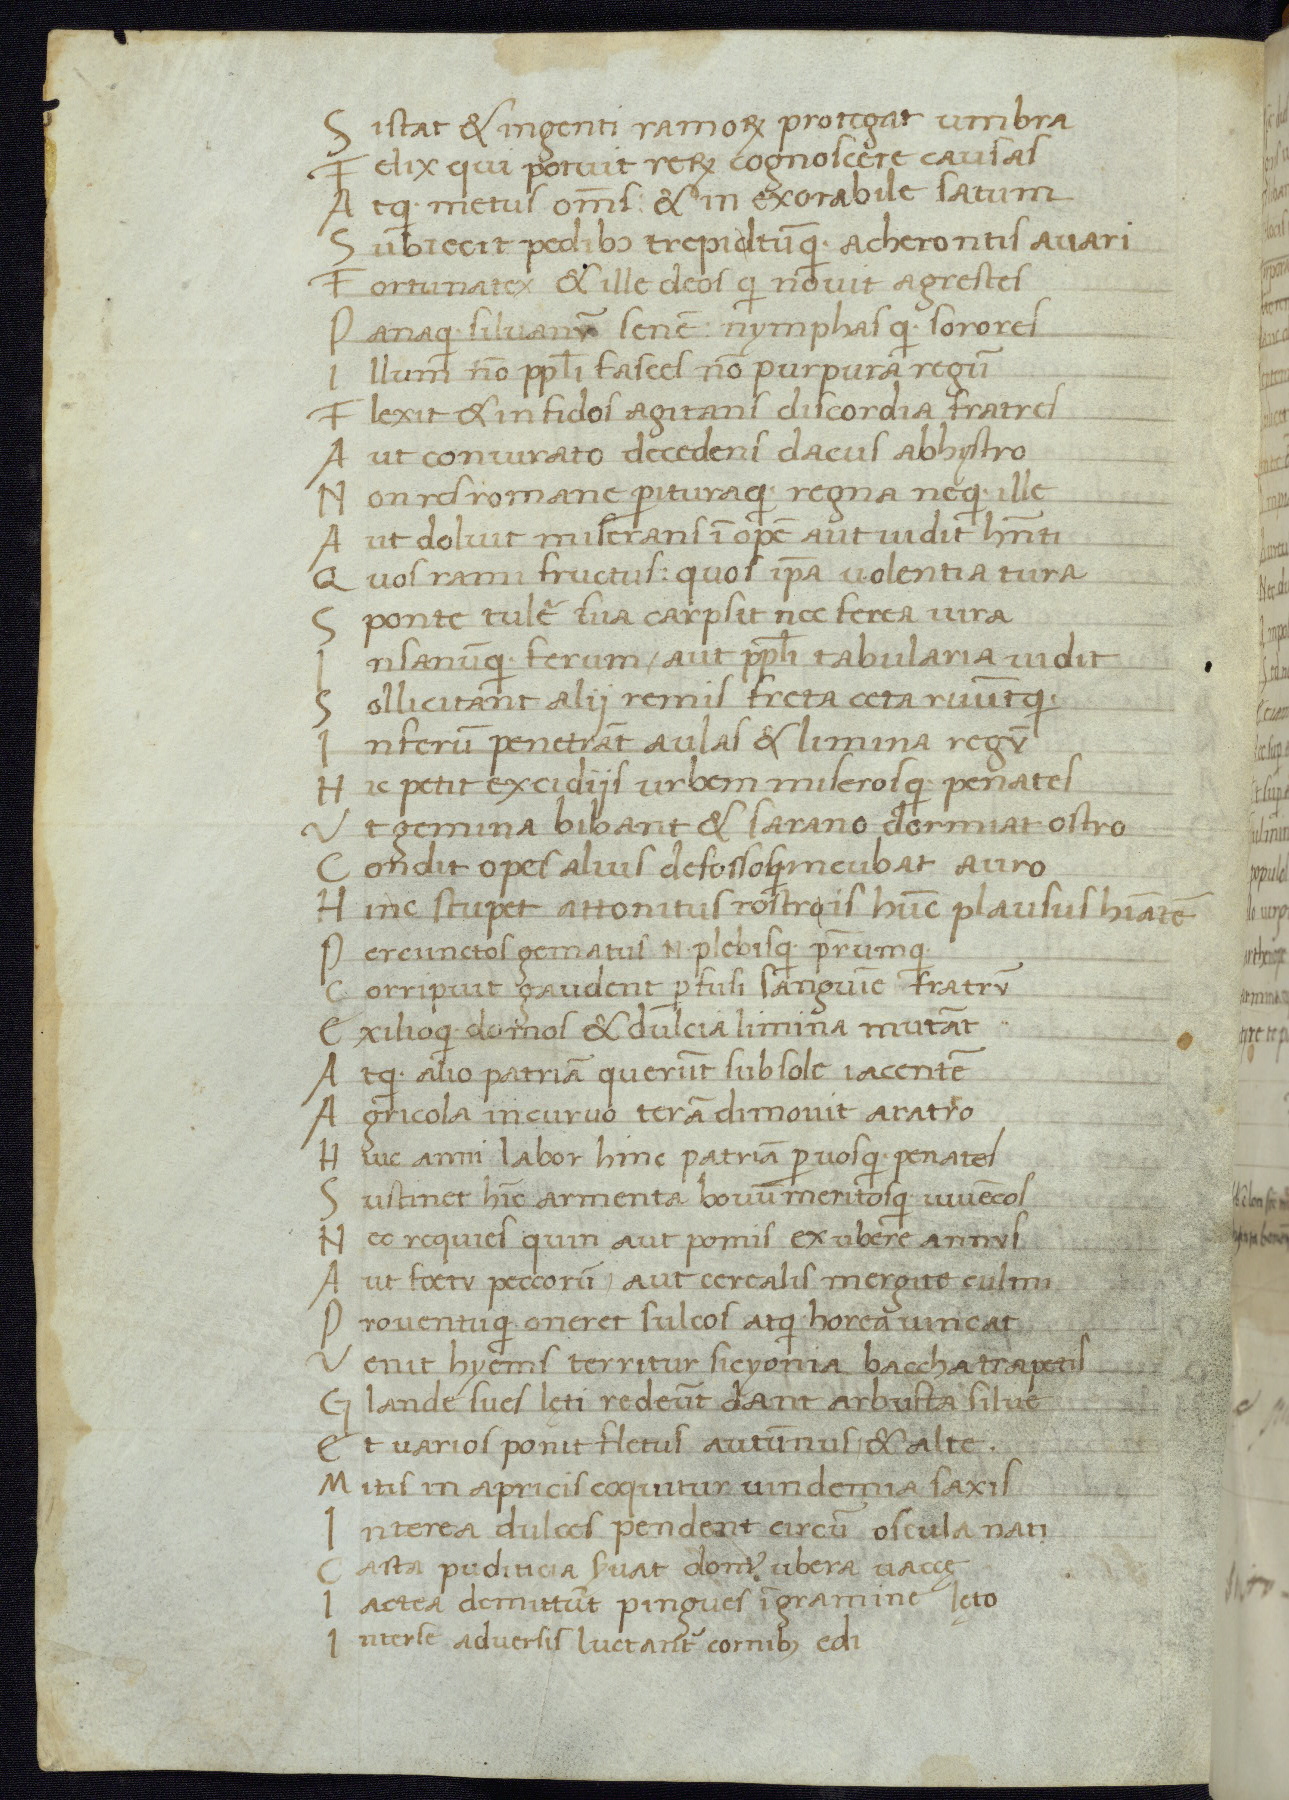 S istat & ingenti ramoꝝ protegat umbra
F elix qui potuit reꝝ cognoscere causas
A tq; metus om̅s: & in exorabile fatum
S ubiecit pedibꝰ trepidtūq; acherontis avari
F ortunatex & ille deos q̇ novit agrestes
P anaq; silvanū senē: nymphasq; sorores
I llum nō pp̅li fasces nō purpura regū
F lexit & infidos agitans discordia fratres
A ut coniurato decedens dacus abhystro
N on res romane ꝑituraq; regna neq; ille
A ut doluit miserans īopē aut uidit hn̅ti
Q uos rami fructus: quos ip̅a uolentia rura
S ponte tulē sua carpsit nec ferea iura
I nsanūq; forum / aut pp̅li tabularia uidit
S ollicitant alij remis freta ceta ruūtq;
I n ferū penetrāt aulas & limina regū
H ic petit excidijs urbem miserosq; penates
V t gemina bibant & sarano dormiat ostro
C ondit opes alius defossoq; incubat auro
H inc stupet attonitus rostris hūc plausus hiātē
P ercunctos gematus N plebisq; pr̅umq;
C orripuit gaudent ꝑfusi sanguīe fratrū
E xilioq; domos & dulcia limina mutāt
A tq; alio patriā querūt sub sole iacentē
A gricola incurvo terā dimovit aratro
H iuc anni labor hinc patriā ꝑuosq; penates
S ustinet hīc armenta bouū meritosq; iuuēcos
N ec requies quin aut pomis exubere annus
A ut foetu peccorū / aut cerealis mergite culmi
P roventuq; oneret sulcos atq; horea uincat
V enit hyems territur sicyonia baccha trapetis
G lande sues lęti redeūt dant arbusta silue
E t varios ponit fletus autūnus / & alte.
M itis in apricis coquitur uindemia saxis
I nterea dulces pendent circū oscula nati
C asta puditicia s̄uat domꝰ. ubera uaccę
I actea demittūt pingues ī gramine lęto
I nterse adversis luctant᷑ cornibꝫ edi